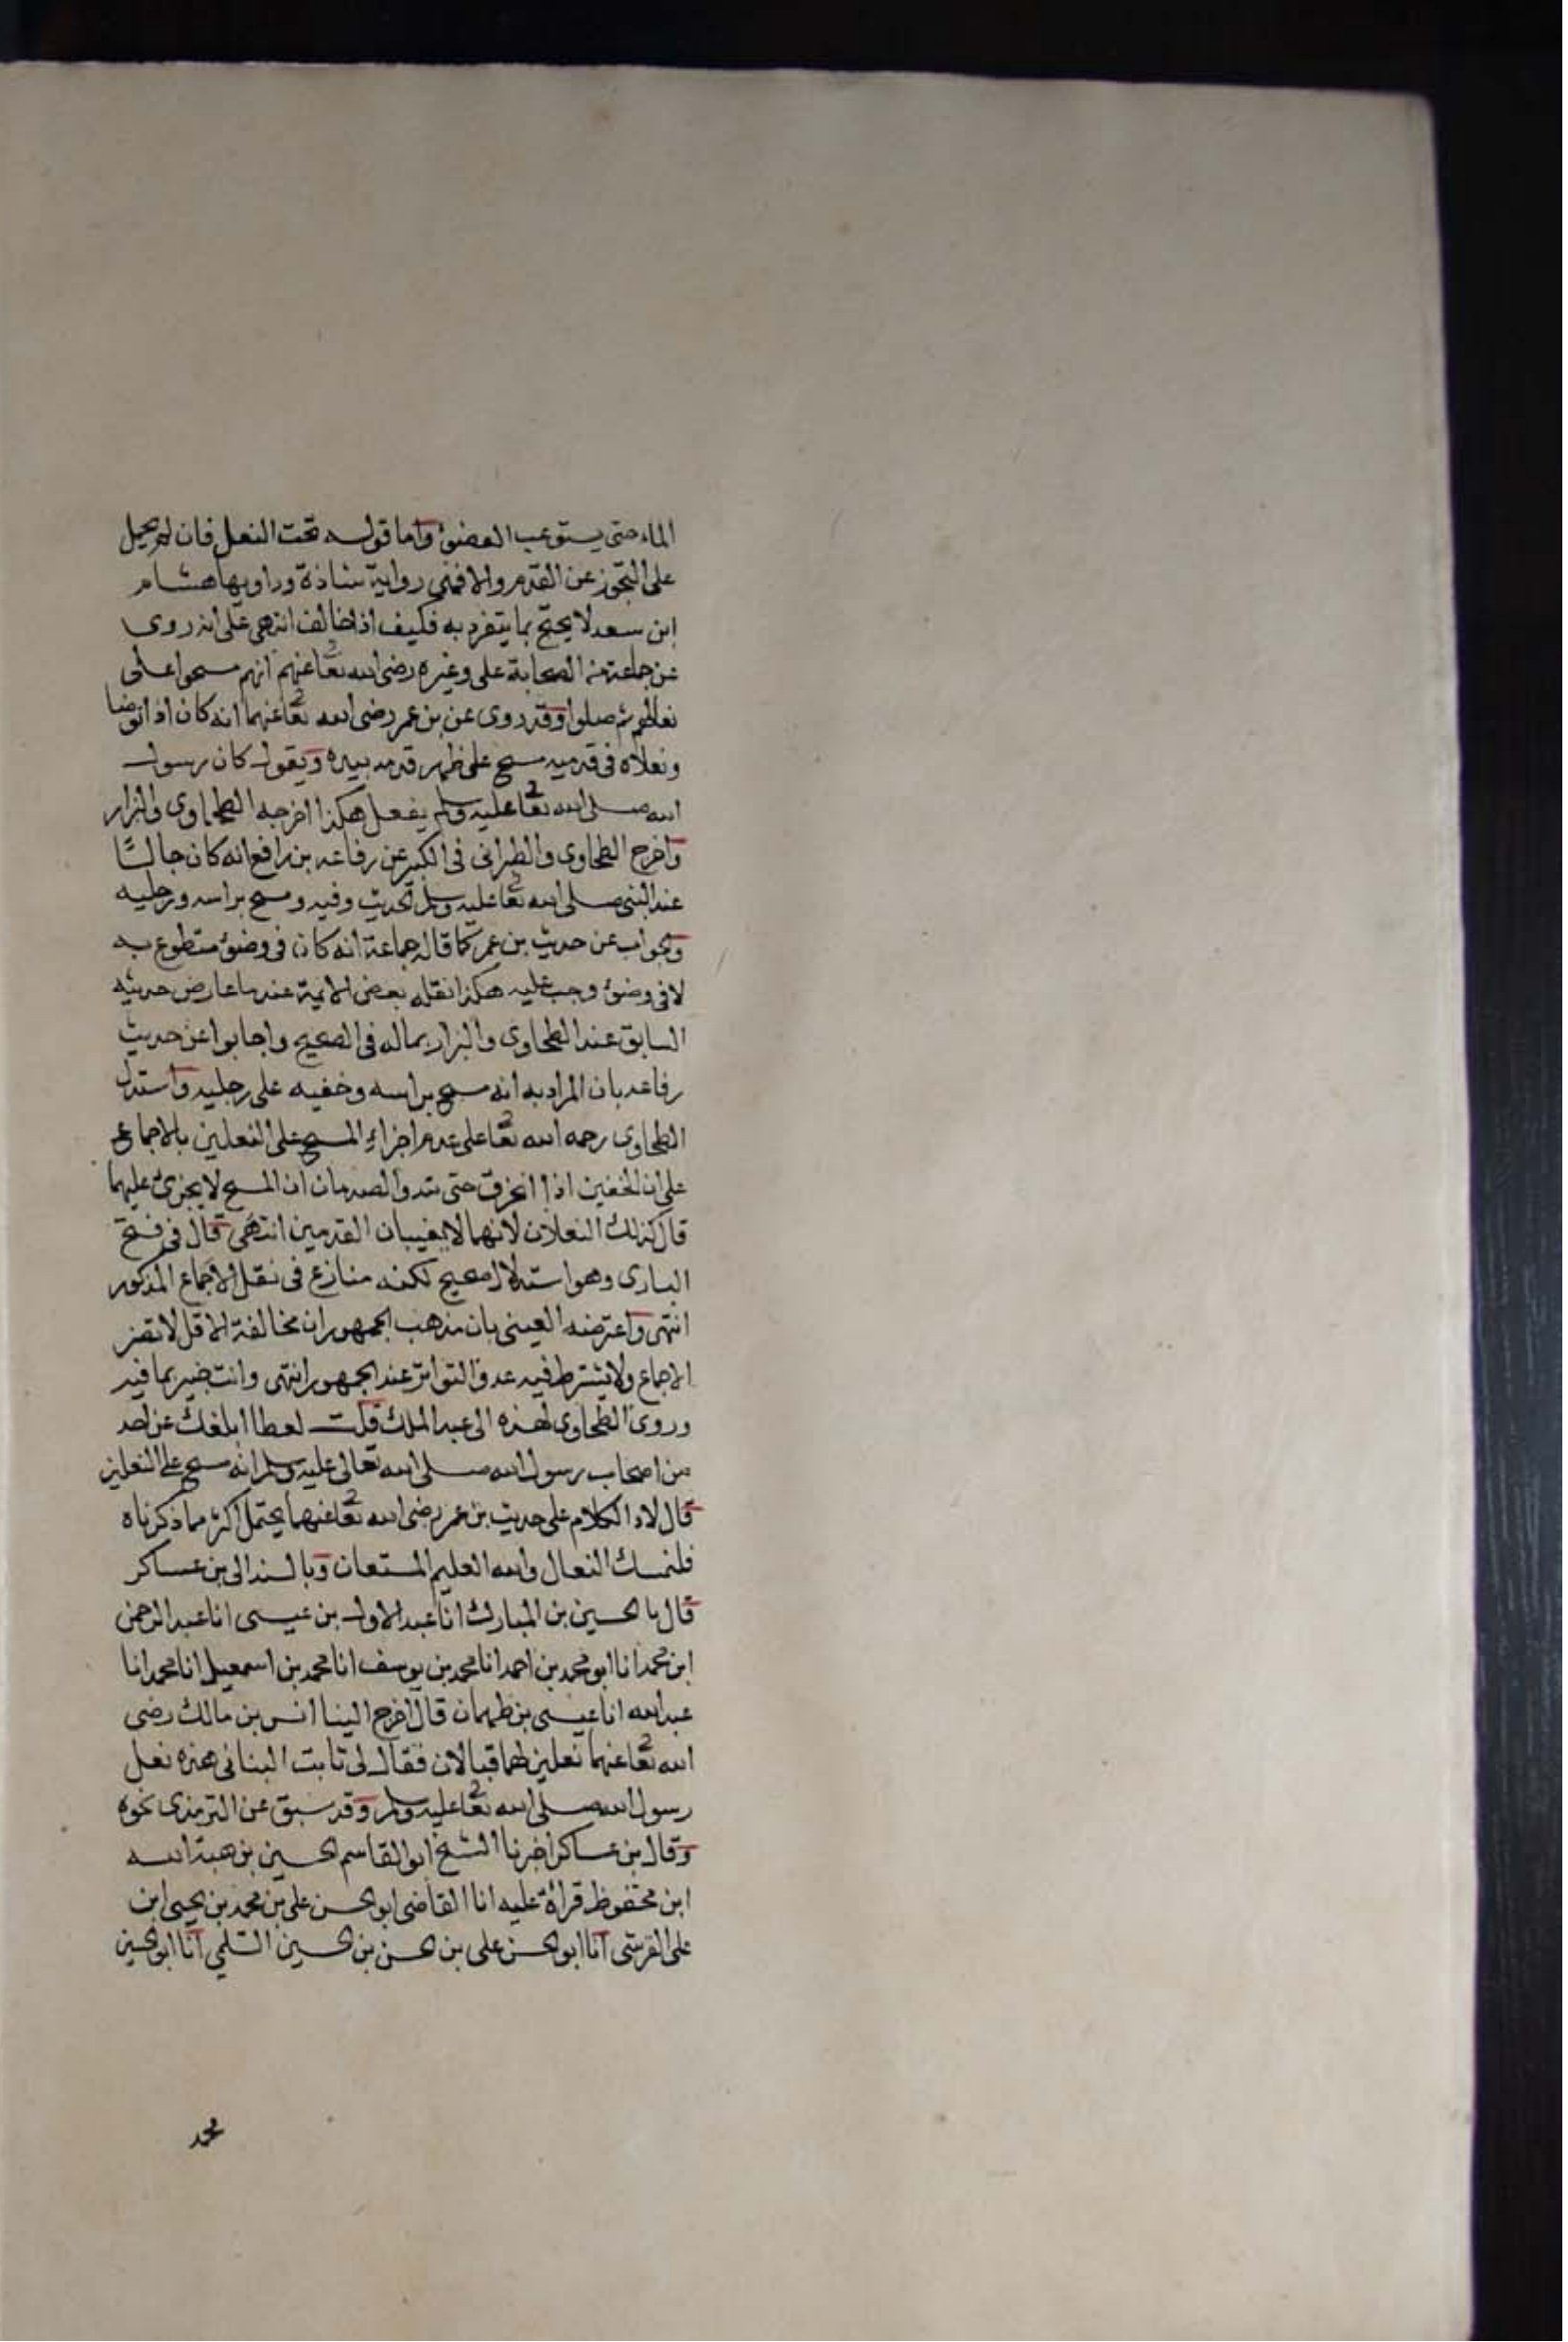 الماء حتى يستوعب العضوء واما قوله تحت النعل فان لم يحمل
على التجوز عن القدم والا فهى رواية شاذة وراويها هشام
ابن سعد لا يحتج بما يتفرد به فكيف اذا خالف انتهى على انه روى
عن جماعة من الصحابة على وغيره رضى الله تعا عنهم انهم مسحوا على
نعالهم ثم صلوا وقد روى عن بن عمر رضى الله تعا عنهما انه كان اذا توضا
ونعلاه فى قدميه مسح على ظهر قدمه بيده ويقول كان رسول
الله صلى الله تعا عليه وسلم يفعل هكذا اخرجه الطحاوى والبزار
واخرج الطحاوى والطبرانى فى الكبير عن رفاعه بن رافع انه كان جالسًا
عند النبى صلى الله تعا عليه وسلم الحديث وفيه ومسح براسه ورجليه
والجواب عن حديث بن عمر كما قاله جماعة انه كان فى وضوء متطوع به
لا فى وضوء وجب عليه هكذا نقله بعض الائمة عندما عارض حديثه
السابق عند الطحاوى والبزار بماله فى الصحيح واجابوا عن حديث
رفاعه بان المراد به انه مسح براسه وخفيه على رجليه واستدل
الطحاوى رحمه الله تعا على عدم اجزاء المسح على النعلين بالاجماع
على ان الخفين اذا انخرق حتى تبدوا القدمان ان المسح لا يجزئ عليهما
قال كذلك النعلان لانهما لا يغيبان القدمين انتهى قال فى فتح
البارى وهو استدلال صحيح لكنه منازع فى نقل الاجماع المذكور
انتهى واعترضه العينى بان مذهب الجمهور ان مخالفة الاقل لا تضر
الاجماع ولا يشترط فيه عدد التواتر عند الجمهور انتهى وانت خبير بما فيه
وروى الطحاوى لهذه الى عبد الملك قلت لعطا ابلغك عن احد
من اصحاب رسول الله صلى الله تعالى عليه وسلم انه مسح على النعلين
قال لا والكلام على حديث بن عمر رضى الله تعا عنهما يحتمل اكثر مما ذكرناه
فلنمسك النعال والله العليم المستعان وبالسند الى بن عساكر
قال نا الحسين بن المبارك انا عبد الاول بن عيسى انا عبد الرحمن
ابن محمد انا ابو محمد بن احمد انا محمد بن يوسف انا محمد بن اسمعيل انا محمد انا
عبد الله انا عيسى بن طهمان قال اخرج الينا انس بن مالك رضى
الله تعا عنهما نعلين لهما قبالان فقال لى ثابت البنانى هذه نعل
رسول الله صلى الله تعا عليه وسلم وقد سبق عن الترمذى نحوه
وقال بن عساكر اخبرنا الشيخ ابو القاسم الحسين بن هبة الله
ابن محفوظ قراة عليه انا القاضى ابو الحسن على بن محمد بن يحيى ابن
على القرشى انا ابو الحسن على بن الحسن بن الحسين السلمي انا ابو الحسين
محمد